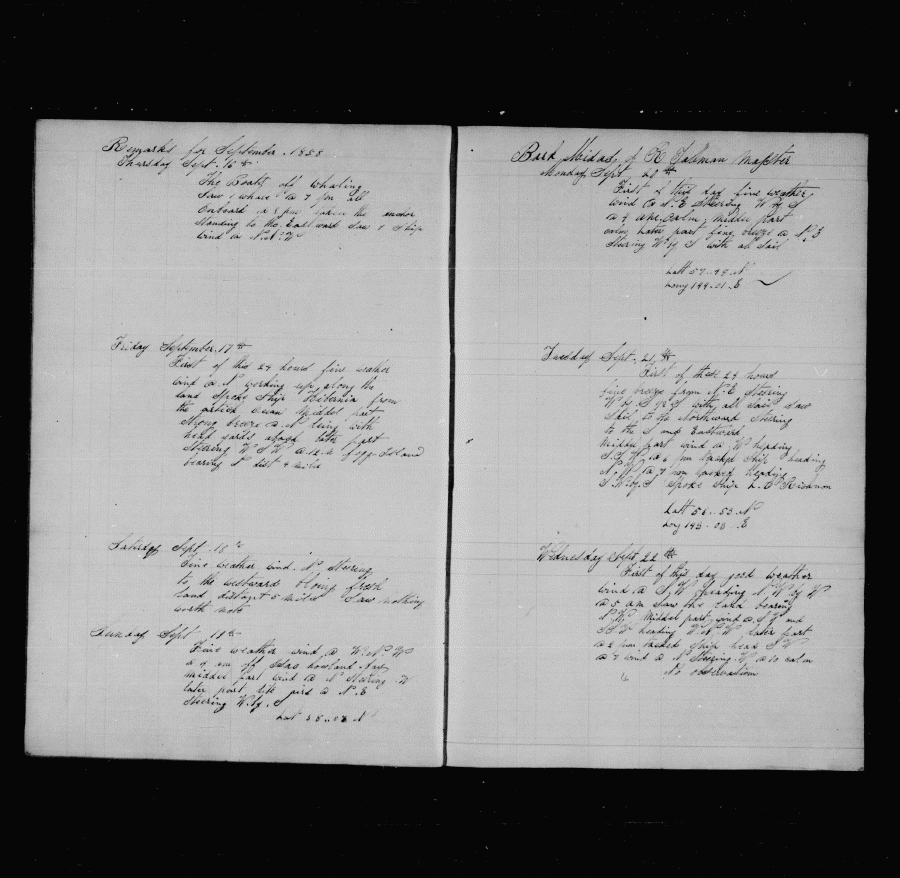 Remarks for September. 1858
Thursday Sept. 16th
The Boats off whaling
Saw 1 whale @ 7 pm all
Onboard @ 8 pm taken the anchor
Standing to the Eastward Saw 1 Ship
wind @ N.N.W
Friday September. 17th
First of this 24 hours fine weather
wind @ N working up along the
land Spoke Ship Hibernia from
the Middel part
Strong breeze @ N lying with
head yards aback later part
Steering W S W @ 12 M Island
bearing N dist 4 miles
Saturday Sept. 18th
Fine weather wind N Steering
to the westward blowing fresh
land distant 5 miles Saw nothing
worth note
Sunday Sept 19th
Fine weather wind @ W.N.W
@ 4 am off
middle part wind @ N Steering W
later part @ N.E
Steering W.by.S
Latt N
Bark Midas, of Master
Monday Sept 20th
First of this day fine weather
wind @ N.E Steering W by S
@ 4 calm, Middle part
Later part fine breeze @ N.E
Steering W by S with all Sail
Latt 57..48 N
Long 144..01.E
Tuesday Sept. 21th
First of these 24 hours
fine breeze from N.E Steering
W by S with all Sail Saw
Ship to the Northward Steering
to the S and Eastward
Middle part wind @ W heading
S.S.W. @ 6 pm tacked Ship heading
N.W @ 7 pm tacked heading
S.W.by.S Spoke Ship
Latt 56..53 N
Long 143..03.E
Wednesday Sept. 22th
First of this day good weather
wind @ S,W heading N W by W
@ 5 am Saw the Land bearing
N.W, Middel part wind @ S.S and
heading W.N.W later part
@ 2 pm tacked Ship head S W
@ 7 wind @ N Steering W @ 10 calm
No observation